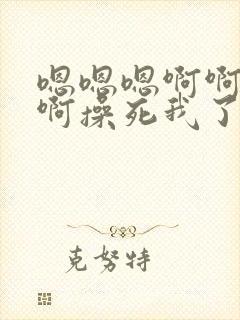 嗯嗯嗯啊啊
啊操死我了
克努特